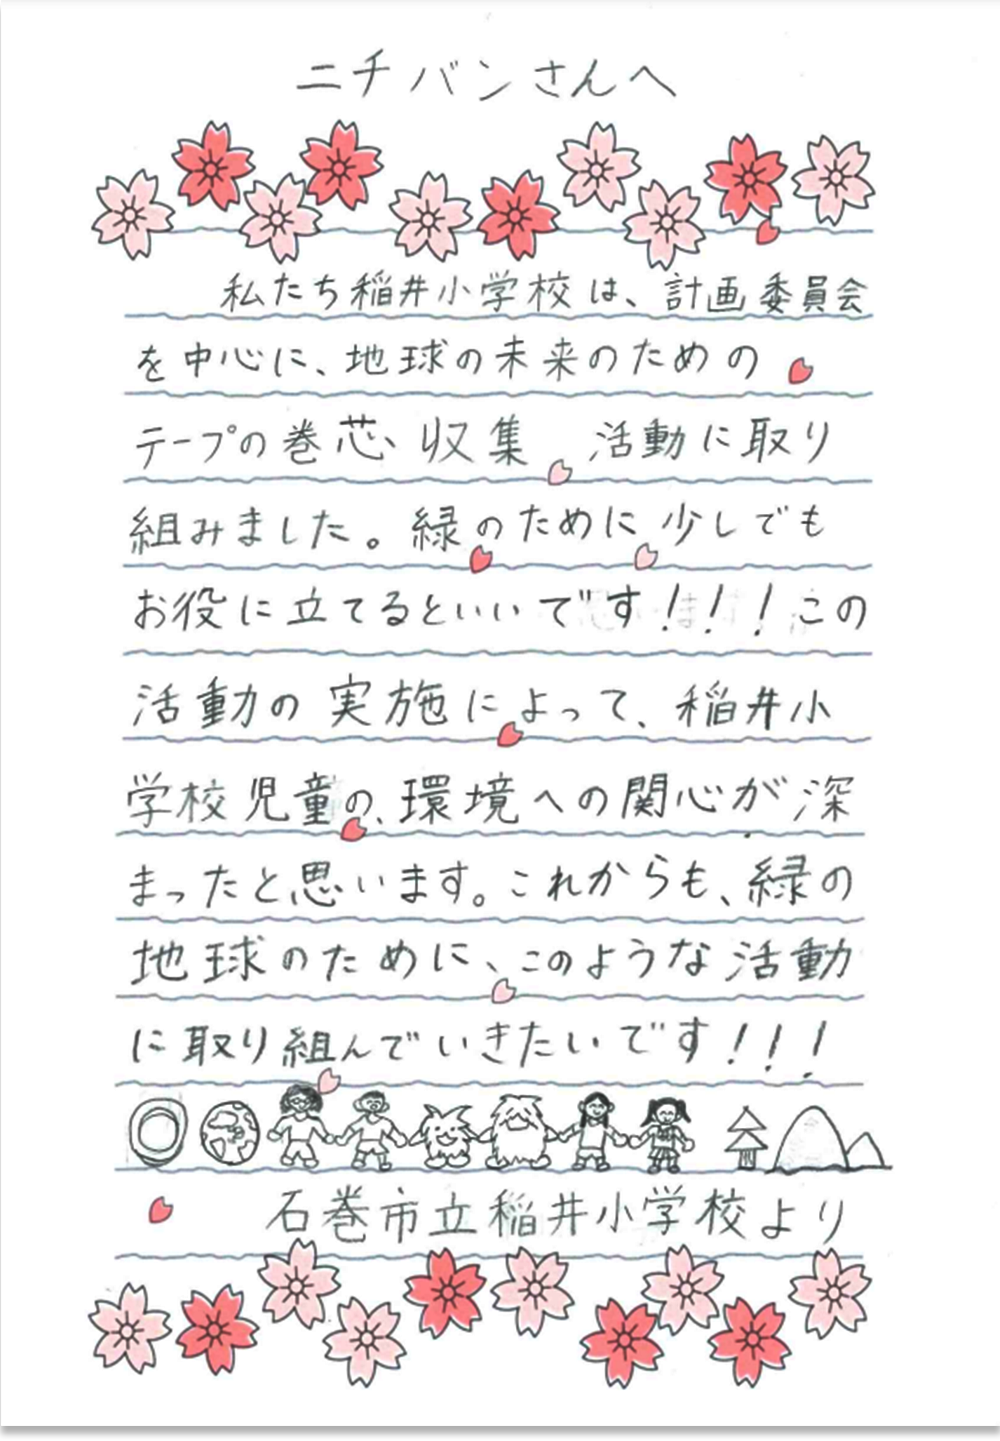 ニチバンさんへ
私たち稲井小学校は、計画委員会
を中心に、地球の未来のための
テープの巻芯、収集 活動に取り
組みました。緑のために少しでも
お役に立てるといいです!!!この
活動の実施によって、稲井小
学校児童の、環境への関心が深
まったと思います。これからも、緑の
地球のために、このような活動
に取り組んでいきたいです!!!
石巻市立稲井小学校より